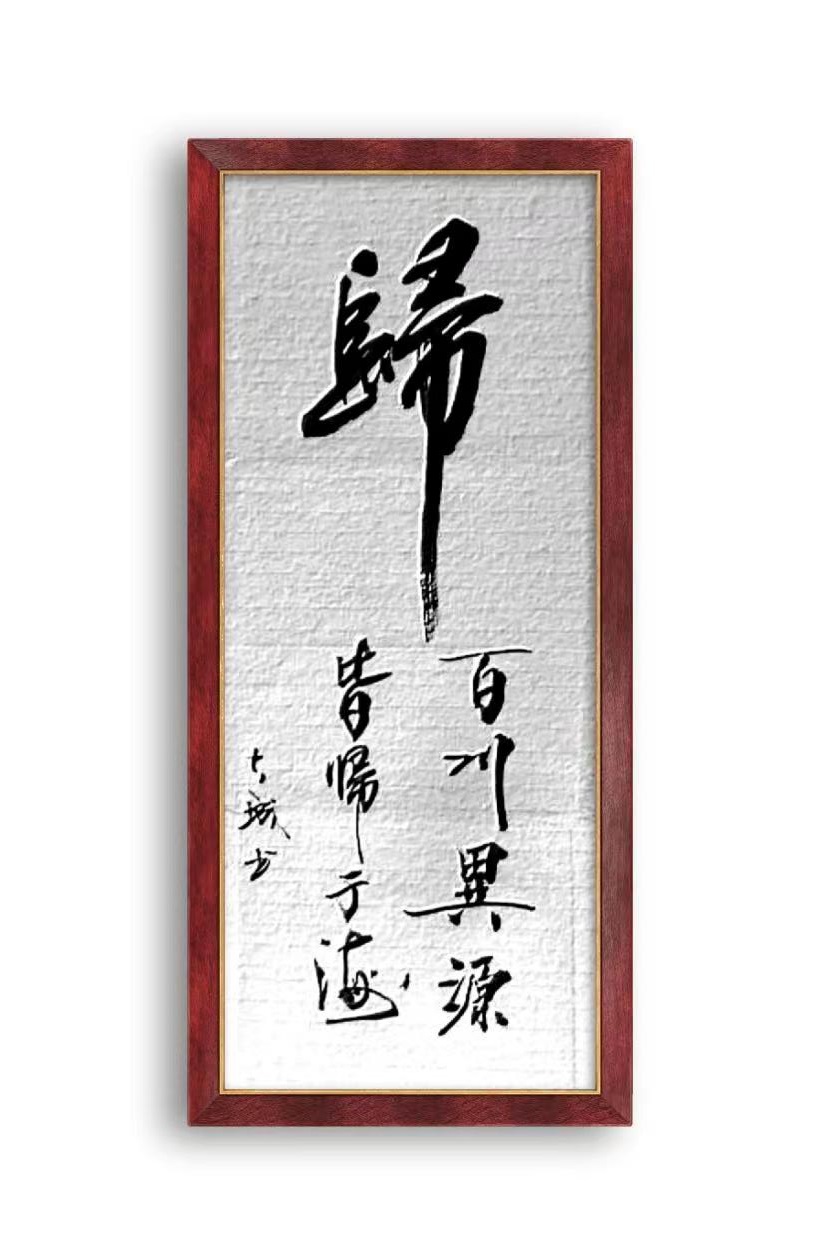 歸
百川異源
皆歸于海
大誠书